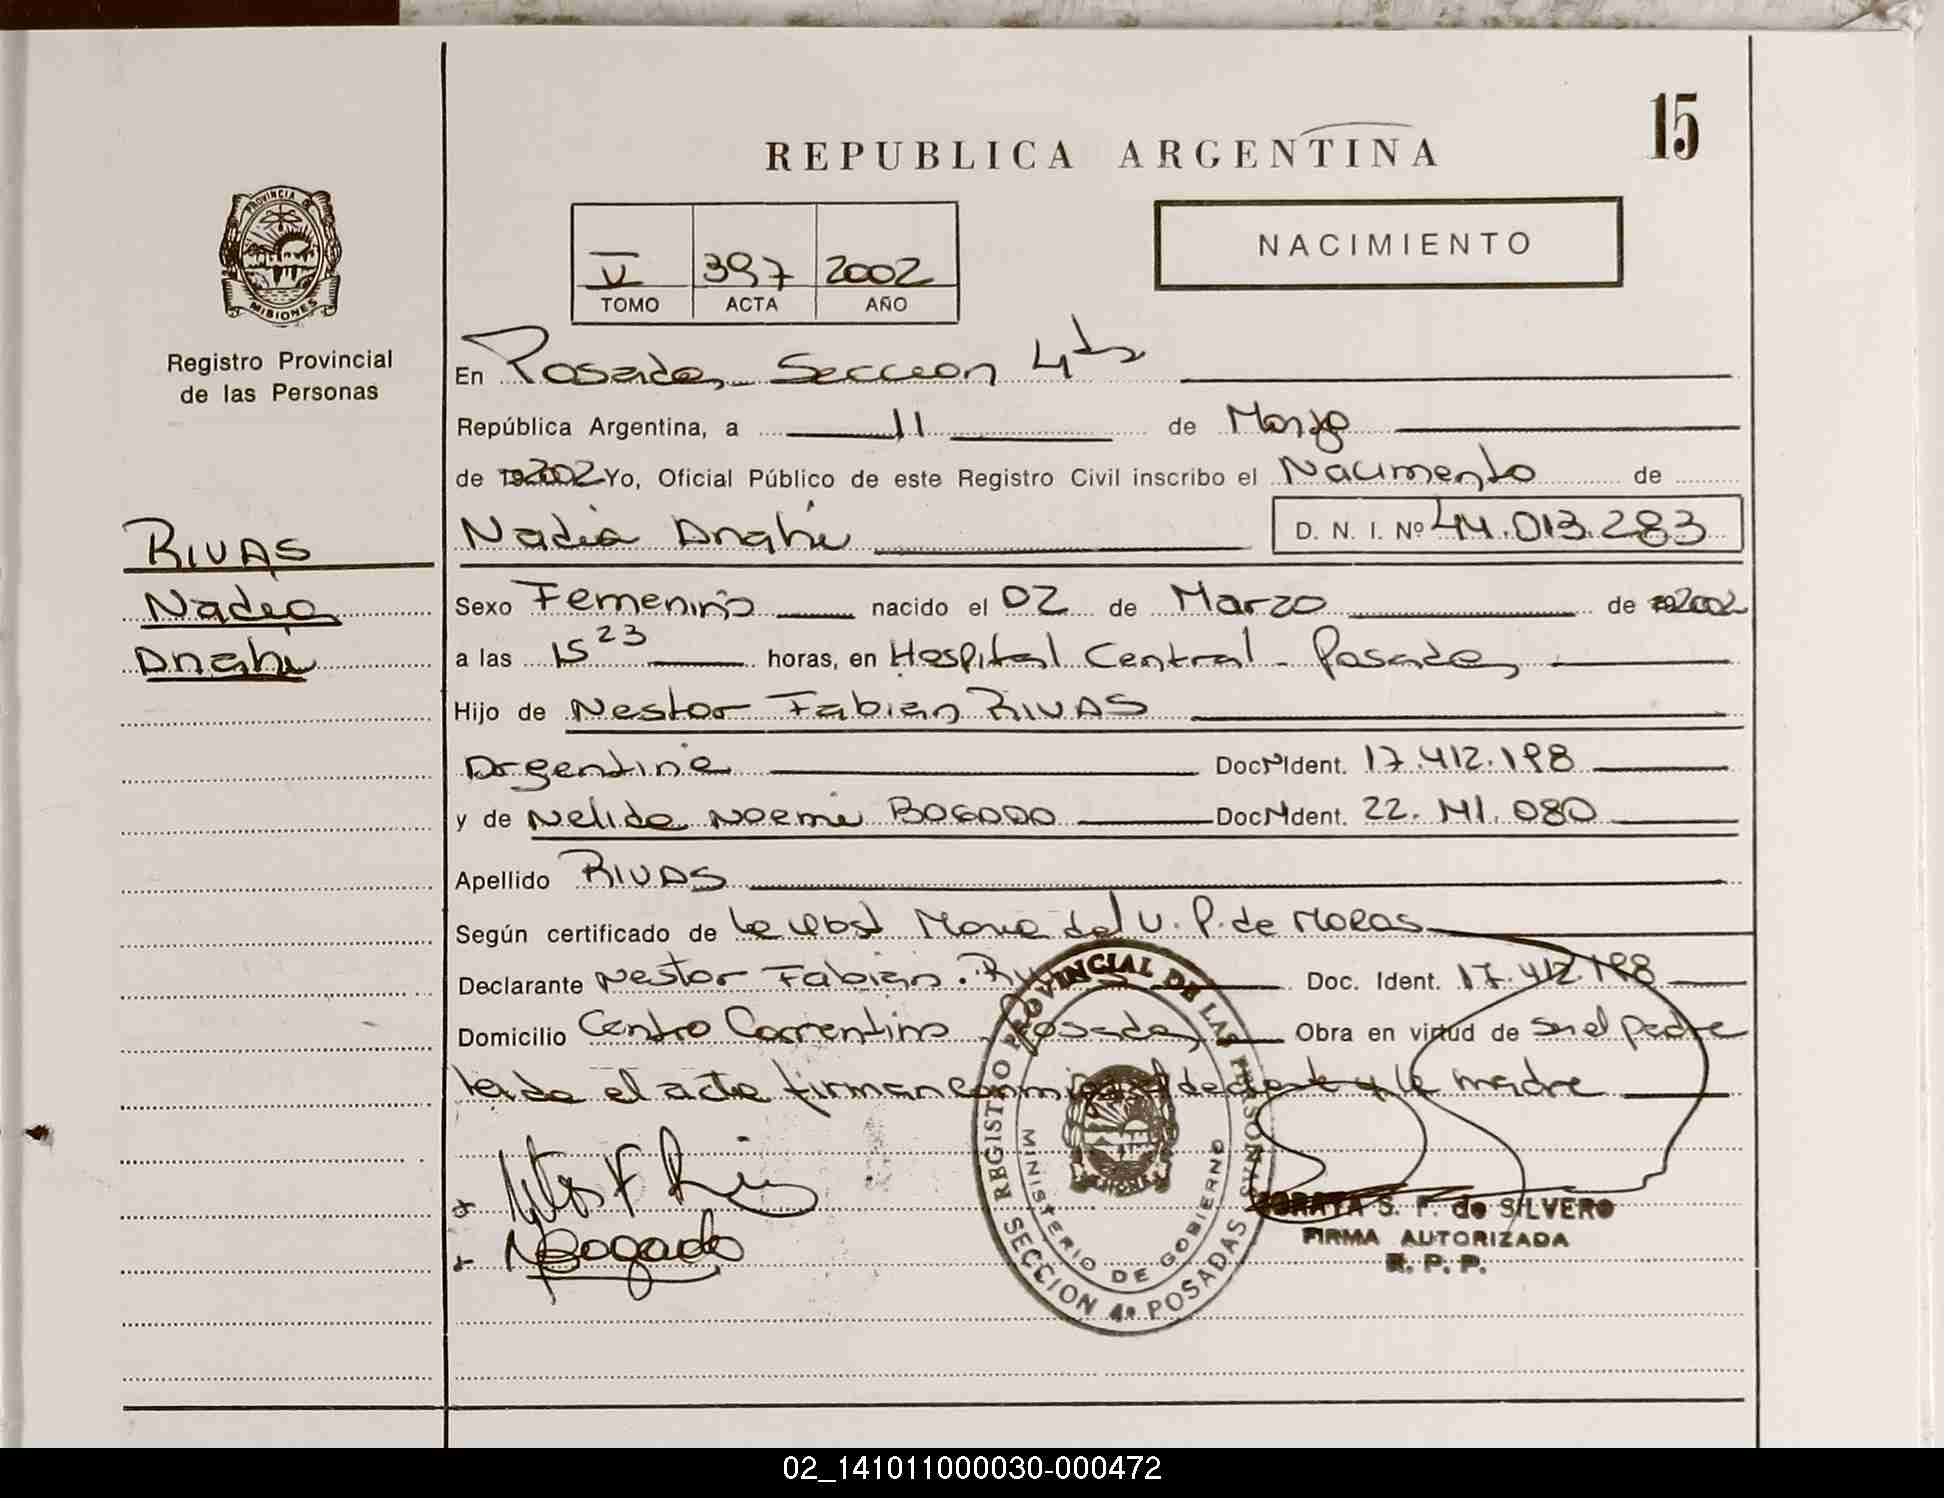 15
REPUBLICA ARGENTINA
PROVINCIA DE
MISIONES
Registro Provincial
de las Personas
V 397 2002
TOMO ACTA AÑO
NACIMIENTO
En Posadas, Seccion 4ta
República Argentina, a 11 de Marzo
de 2002 Yo, Oficial Público de este Registro Civil inscribo el Nacimiento de
Nadia Anahi D. N. I. Nº 44.013.283
RIVAS
Nadia
Anahi
Sexo Femenino nacido el 02 de Marzo de 2002
a las 15 23 horas, en Hospital Central - Posadas
Hijo de Nestor Fabian RIVAS
Argentina Doc Ident. 17.412.198
y de Nelida Noemi BOGADO Doc Ident. 22.141.080
Apellido RIVAS
Según certificado de la Obst Maria del V. P. de MORAS
Declarante Nestor Fabian Rivas Doc. Ident. 17.412.198
Domicilio Centro Correntino, Posadas Obra en virtud de ser el padre
leida el acta firman conmigo el declarante y la madre
Bogado
REGISTRO PROVINCIAL DE LAS PERSONAS
MINISTERIO DE GOBIERNO
SECCION 4ª POSADAS
MISIONES
SORAYA S. P. de SILVERO
FIRMA AUTORIZADA
R. P. P.
02_141011000030-000472